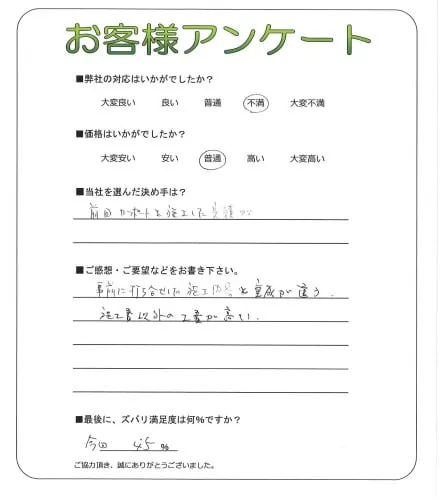 お客様アンケート
■弊社の対応はいかがでしたか？
大変良い 良い 普通 不満 大変不満
■価格はいかがでしたか？
大変安い 安い 普通 高い 大変高い
■当社を選んだ決め手は？
前回カーポートを施工した実績から
■ご感想・ご要望などをお書き下さい。
事前に打ち合せした施工内容と 違う。
施工書以外の工事が高い。
■最後に、ズバリ満足度は何％ですか？
今回 45％
ご協力頂き、誠にありがとうございました。